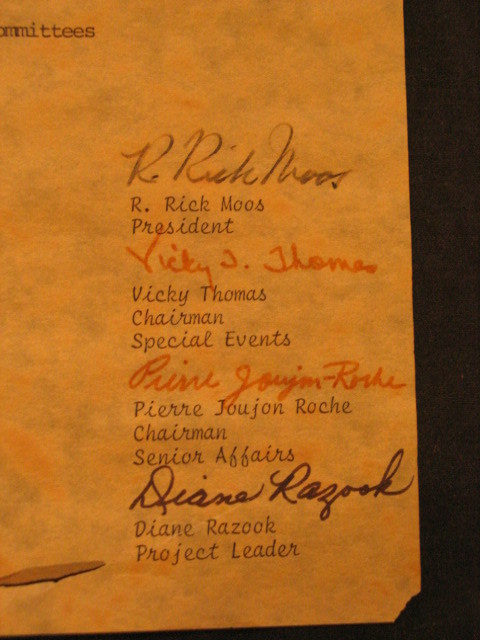 ommittees
R. Rick Moos
R. Rick Moos
President
Vicky J. Thomas
Vicky Thomas
Chairman
Special Events
Pierre Joujon-Roche
Pierre Joujon Roche
Chairman
Senior Affairs
Diane Razook
Diane Razook
Project Leader